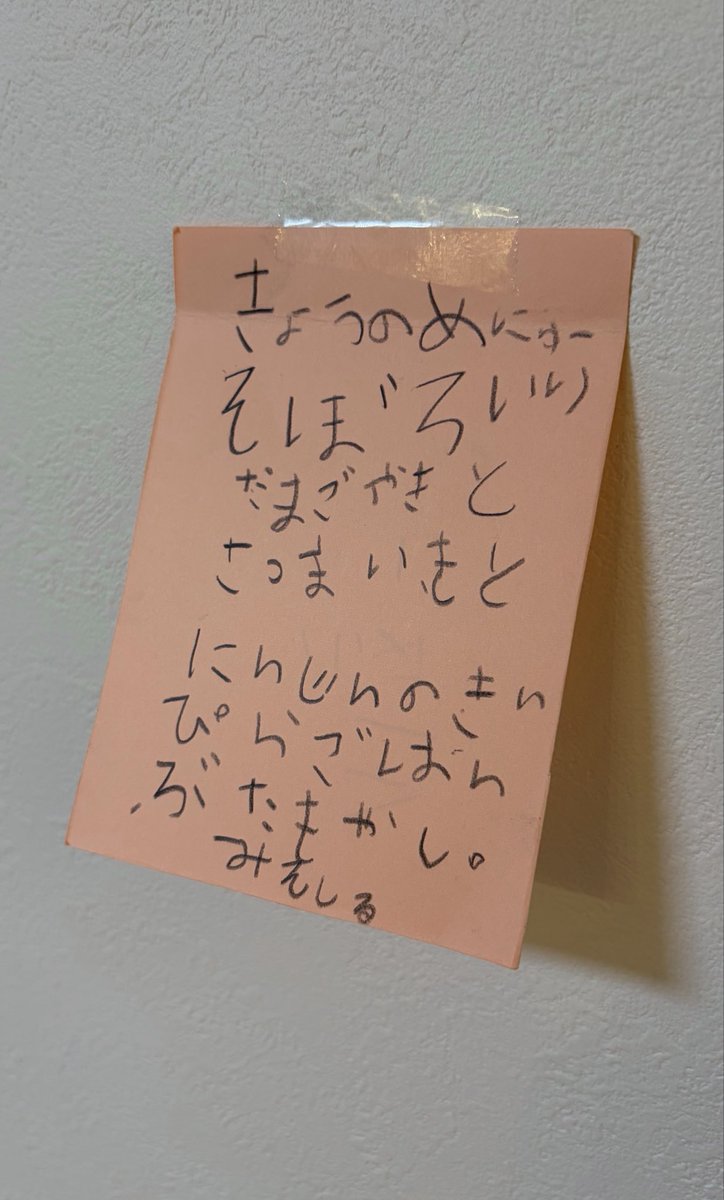 きょうのめにゅー
そぼろいり
たまごやきと
さつまいもと
にんじんのきん
ぴらごはん
ぶたまかし。
みそしる